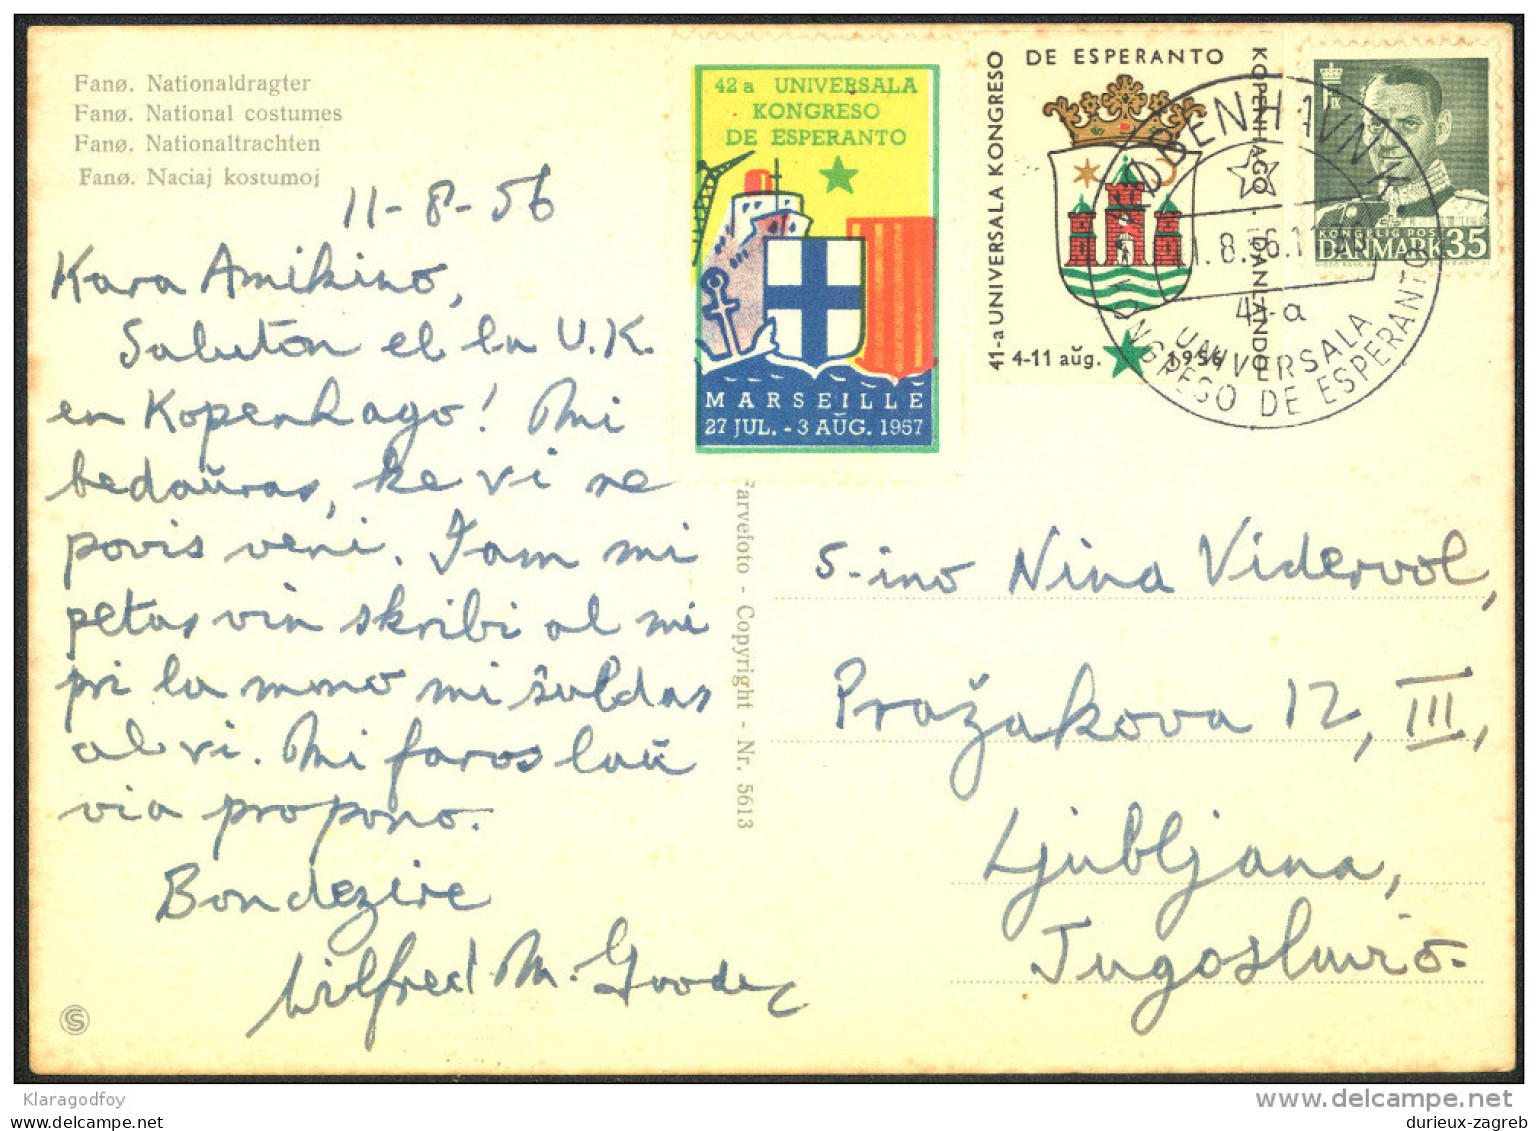 Fanø. Nationaldragter
Fanø. National costumes
Fanø. Nationaltrachten
Fanø. Naciaj kostumoj
11-8-56
Kara Amikino,
Saluton el la U.K.
en Kopenhago! Mi
bedaŭras, ke vi ne
povis veni. Tam mi
petas vin skribi al mi
pri la mono mi ŝuldas
al vi. Mi faros laŭ
via propono.
Bondezire
Wilfred M.
42a UNIVERSALA
KONGRESO
DE ESPERANTO
MARSEILLE
27 JUL. - 3 AŬG. 1957
41-a UNIVERSALA KONGRESO
DE ESPERANTO
KOPENHAGO - DANLANDO
4-11 aŭg. 1956
KONGELIG POST
DANMARK 35
KØBENHAVN K
11.8.56.
41-a
UNIVERSALA
KONGRESO DE ESPERANTO
Farvefoto - Copyright - Nr. 5613
S-ino Nina Vidervol,
Pražakova 12, III,
Ljubljana,
Jugoslavio.
S
Klaragodfoy
delcampe.net
durieux-zagreb